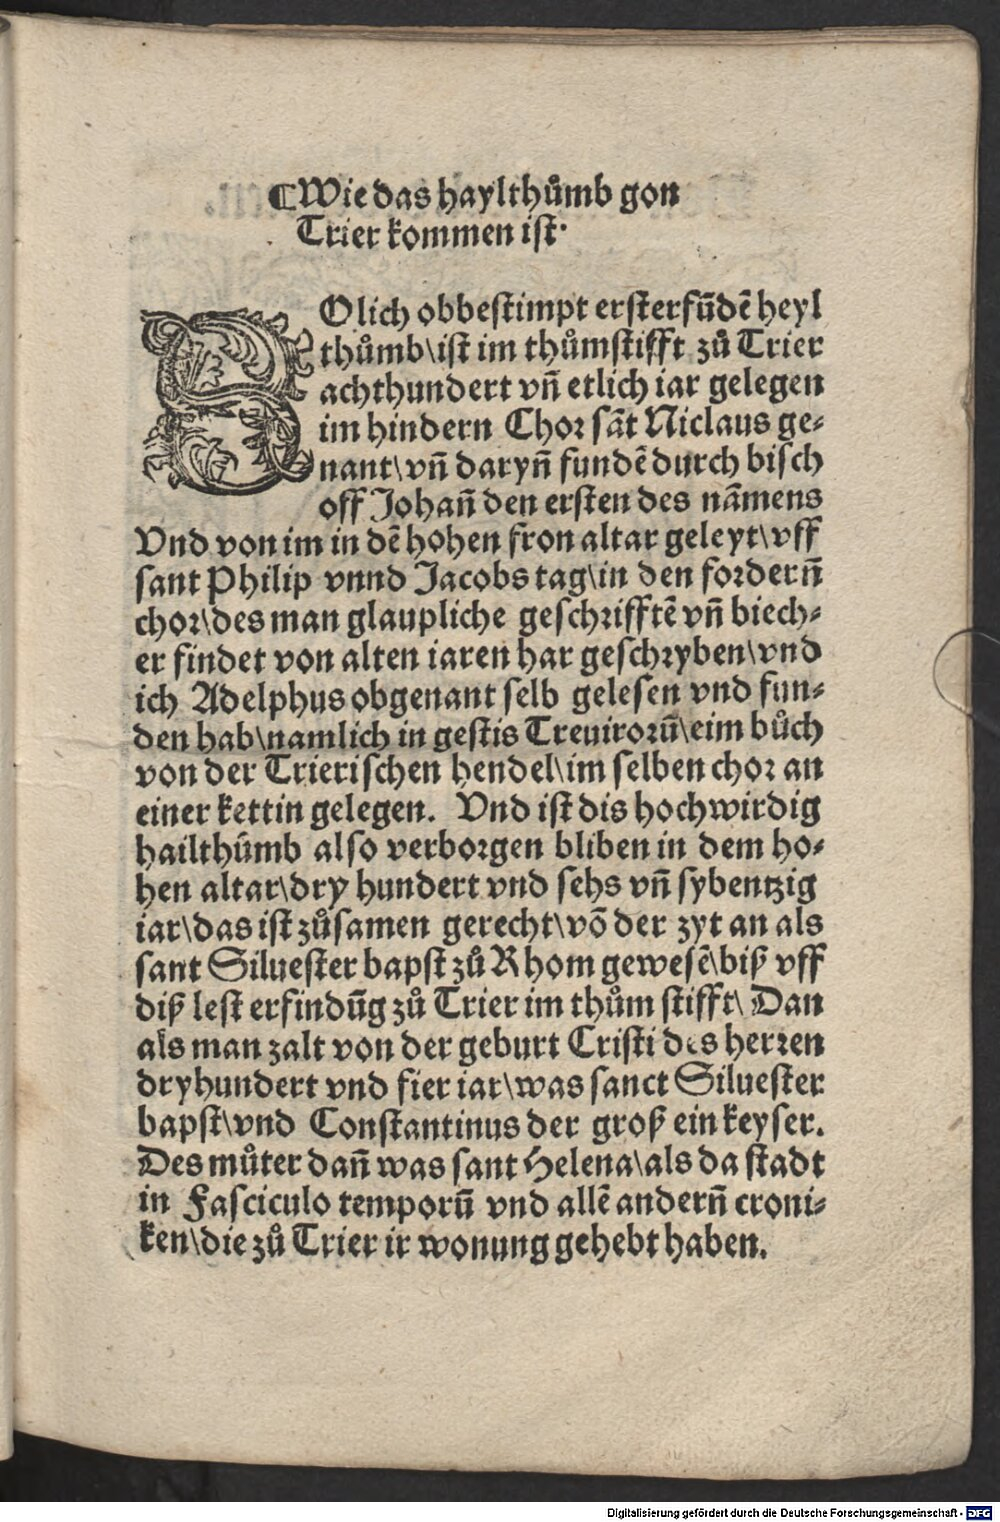 ¶Wie das haylthůmb gon
Trier kommen ist·
SOlich obbestimpt ersterfūdē heyl
thůmb\ist im thůmstifft zů Trier
achthundert vn̄ etlich iar gelegen
im hindern Chor sāt Niclaus ge⸗
nant\vn̄ daryn̄ fundē durch bisch
off Johan̄ den ersten des nāmens
Vnd von im in dē hohen fron altar geleyt\vff
sant Philip vnnd Jacobs tag\in den fordern̄
chor\des man glaupliche geschrifftē vn̄ biech⸗
er findet von alten iaren har geschryben\vnd
ich Adelphus obgenant selb gelesen vnd fun⸗
den hab\namlich in gestis Treuirorū\eim bůch
von der Trierischen hendel\im selben chor an
einer kettin gelegen. Vnd ist dis hochwirdig
hailthůmb also verborgen bliben in dem ho⸗
hen altar\dry hundert vnd sehs vn̄ sybentzig
iar\das ist zůsamen gerecht\vō der zyt an als
sant Siluester bapst zů Rhom gewesē\biß vff
diß lest erfindūg zů Trier im thům stifft\ Dan
als man zalt von der geburt Cristi des herren
dryhundert vnd fier iar\was sanct Siluester
bapst\vnd Constantinus der groß ein keyser.
Des můter dan̄ was sant Helena\als da stadt
in Fasciculo temporū vnd allē andern̄ croni⸗
ken\die zů Trier ir wonung gehebt haben.
Digitalisierung gefördert durch die Deutsche Forschungsgemeinschaft - DFG